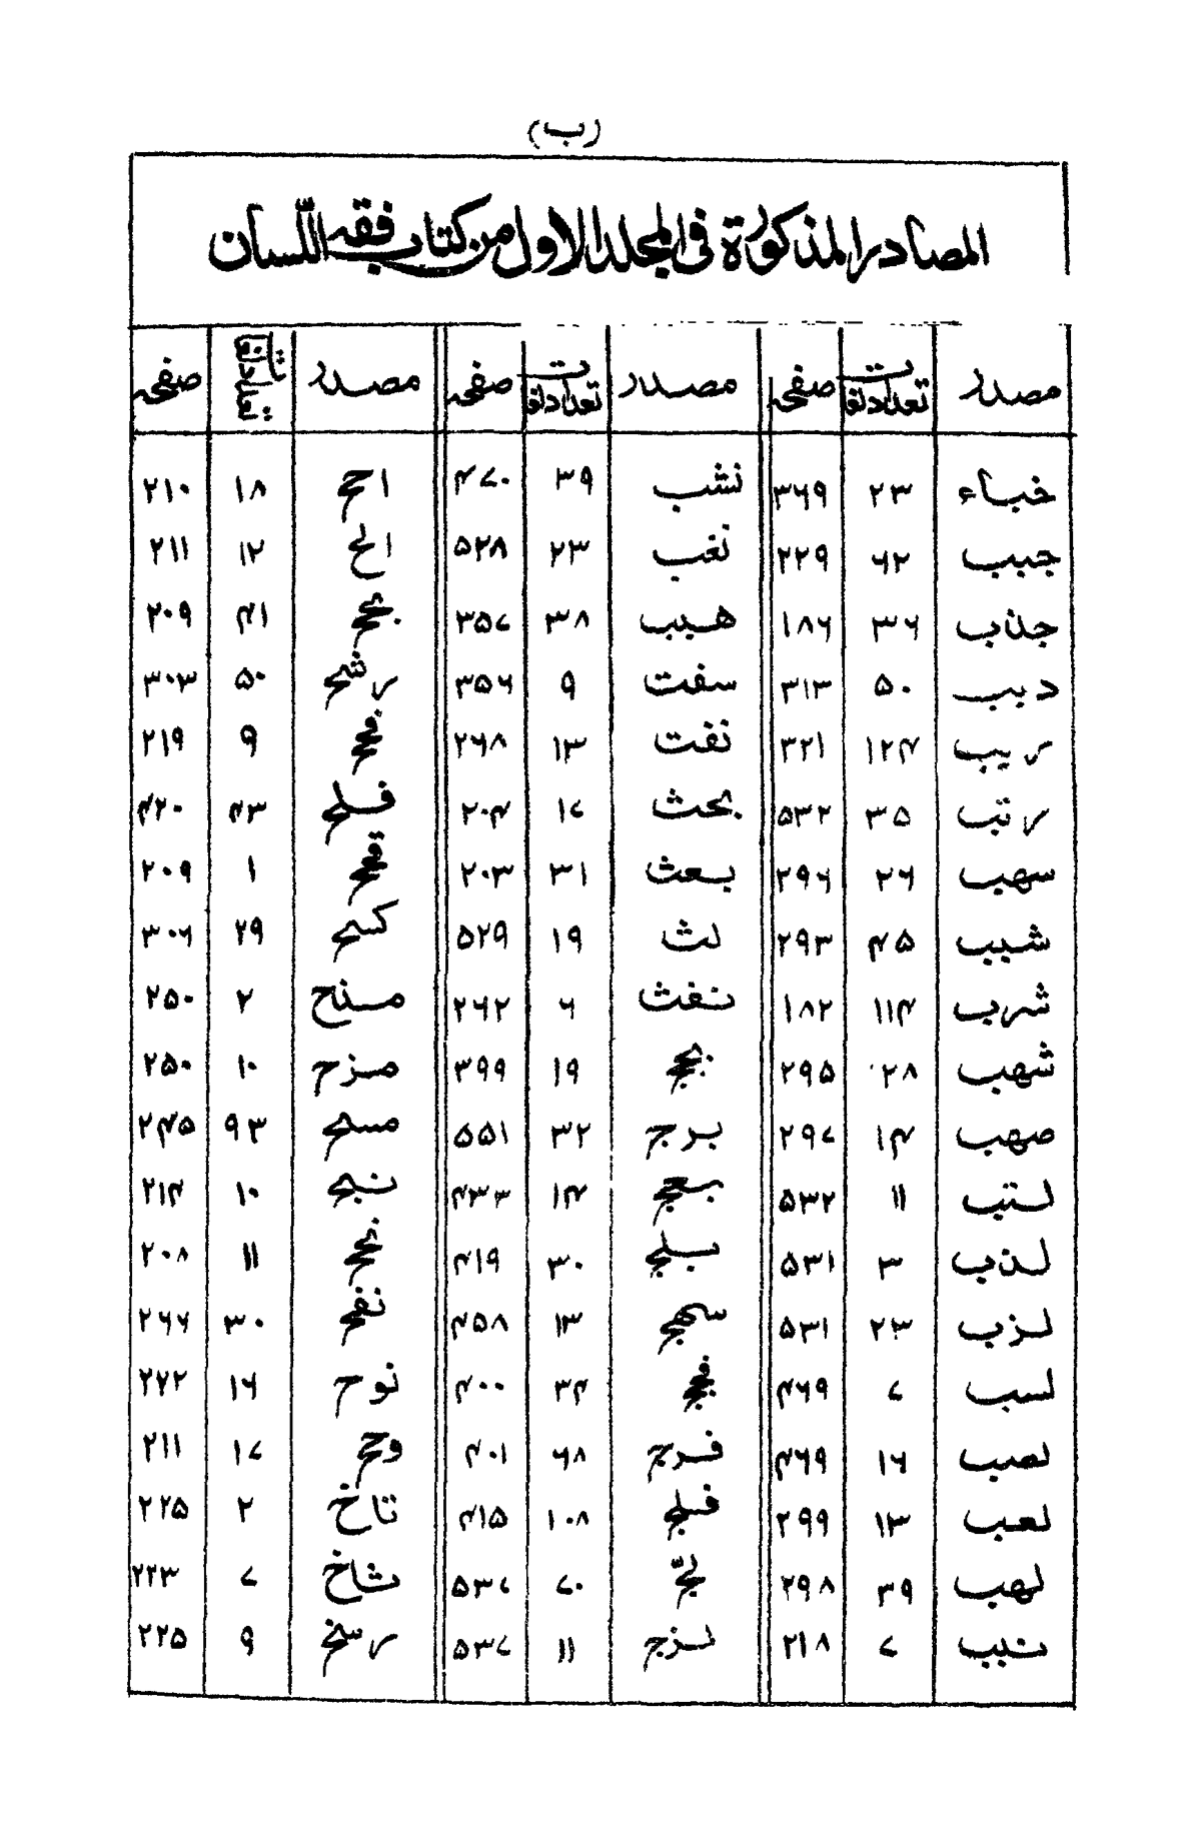 (ب)
المصادر المذكورة فى المجلد الاول من كتاب فقه اللّسان
مصدر تعدادلغات صفحه مصدر تعدادلغات صفحه مصدر تعدادلغات صفحه
خباء ۲۳ ۳۶۹ نشب ۳۹ ۴۷۰ احح ۱۸ ۲۱۰
جبب ۶۲ ۲۲۹ نغب ۲۳ ۵۲۸ الح ۱۲ ۲۱۱
جذب ۳۶ ۱۸۶ هيب ۳۸ ۳۵۷ بحح ۴۱ ۲۰۹
دبب ۵۰ ۳۱۳ سفت ۹ ۳۵۶ رشح ۵۰ ۳۰۳
ريب ۱۲۴ ۳۲۱ نفت ۱۳ ۲۶۸ فحح ۹ ۲۱۹
رتب ۳۵ ۵۳۲ بحث ۱۷ ۲۰۴ فلح ۴۳ ۴۲۰
سهب ۲۶ ۲۹۶ بعث ۳۱ ۲۰۳ قحح ۱ ۲۰۹
شبب ۴۵ ۲۹۳ لث ۱۹ ۵۲۹ كسح ۲۹ ۳۰۶
شرب ۱۱۴ ۱۸۲ نفث ۶ ۲۶۲ منح ۲ ۲۵۰
شهب ۲۸ ۲۹۵ بجج ۱۹ ۳۹۹ مزح ۱۰ ۲۵۰
صهب ۱۴ ۲۹۷ برج ۳۲ ۵۵۱ مسح ۹۳ ۲۴۵
لتب ۱۱ ۵۳۲ بعج ۱۴ ۴۳۳ نبح ۱۰ ۲۱۴
لذب ۳ ۵۳۱ بلج ۳۰ ۴۱۹ نحح ۱۱ ۲۰۸
لزب ۲۳ ۵۳۱ سمهج ۱۳ ۴۵۸ نفح ۳۰ ۲۶۶
لسب ۷ ۴۶۹ فجج ۳۴ ۴۰۰ نوح ۱۶ ۲۷۲
لصب ۱۶ ۴۶۹ فرج ۶۸ ۴۰۱ وحح ۱۷ ۲۱۱
لعب ۱۳ ۲۹۹ فلج ۱۰۸ ۴۱۵ تاخ ۲ ۲۲۵
لهب ۳۹ ۲۹۸ لجّ ۷۰ ۵۳۷ ثاخ ۷ ۲۲۳
نبب ۷ ۲۱۸ لزج ۱۱ ۵۳۷ رسخ ۹ ۲۲۵